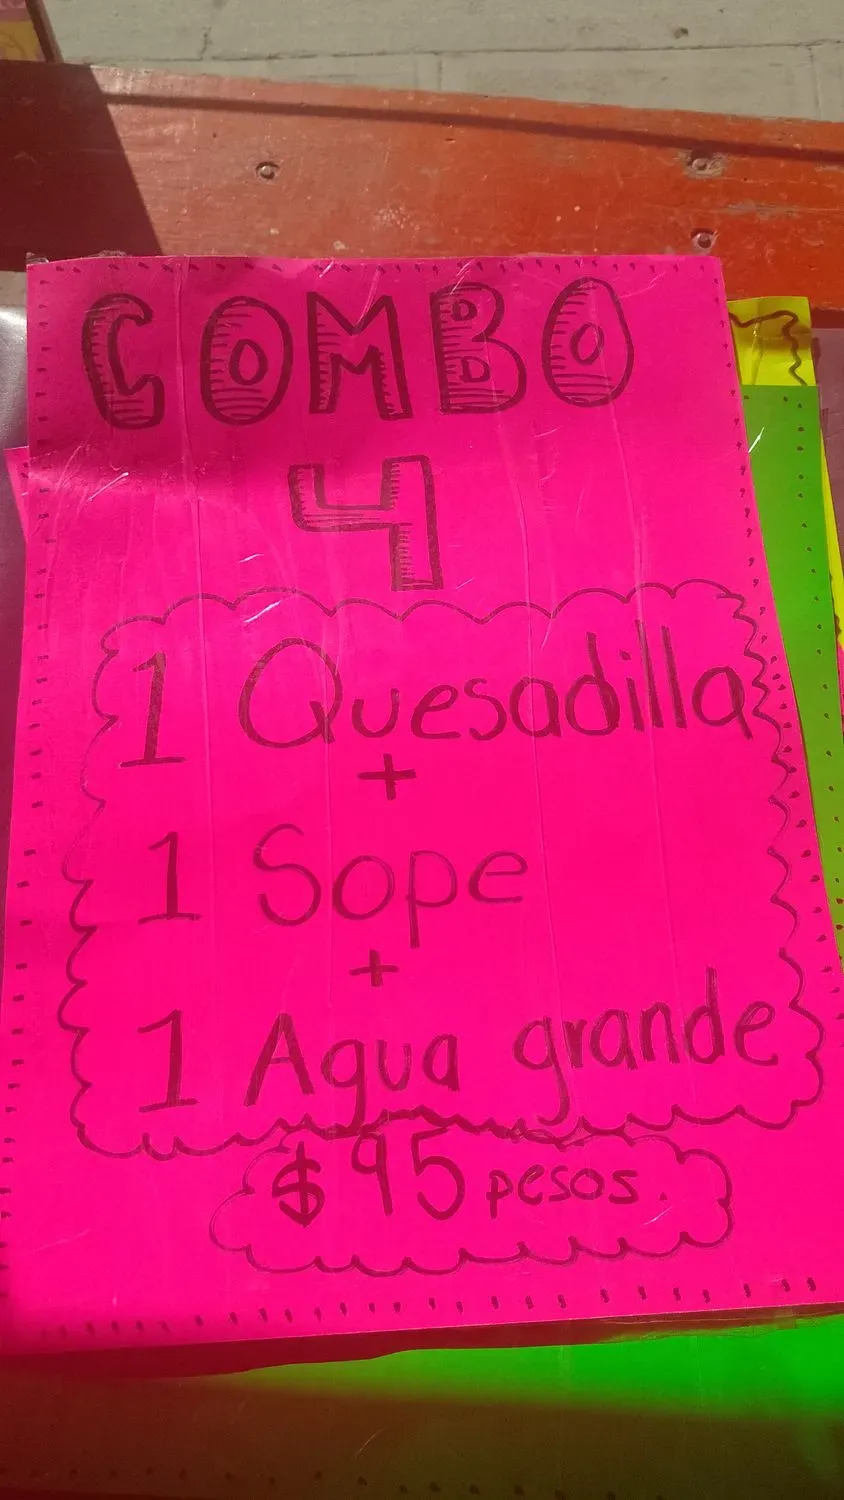 COMBO
4
1 Quesadilla
+
1 Sope
+
1 Agua grande
$95 pesos.